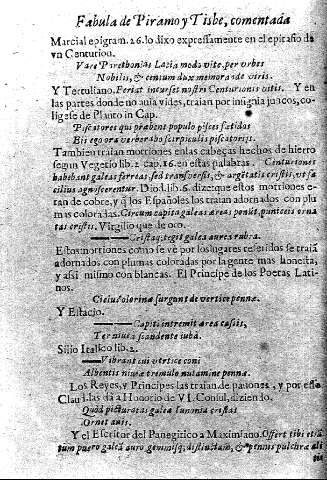 Fabula de Piramo y Tisbe, comentada
Marcial epigram. 26. lo dixo expressamente en el epitafio de
vn Centurion.
Vare Parethonias Latia modo vite per vrbes
Nobilis, & centum dux memorande viris.
Y Tertuliano, Periat incurses nostri Centurionis vitis. Y en
las partes donde no auia vides, traian por insignia juncos, co-
ligese de Plauto in Cap.
Piscatores qui præbent populo pisces fœtidos
Eis ego ora verberabo scirpiculis piscatorijs.
Tambien traian morriones en las cabeças hechos de hierro
segun Vegetio lib. 2. cap. 16. en estas palabras. Centuriones
habebant galeas ferreas, sed transuersis, & argẽtatis cristis, vt fa
cilius agnoscerentur. Diod. lib. 6. dize que estos morriones e-
ran de cobre, y q̃ los Españoles los traian adornados con plu
mas coloradas. Circum capita galeas æreas ponũt, puniceis orna
tas cristis. Virgilio que de oro.
Cristaq; tegit galea aurea rubra.
Estos morriones como se vè por los lugares referidos se traiã
adornados con plumas coloradas por la gente mas honesta,
y assi mismo con blancas. El Principe de los Poetas Lati-
nos.
Cuius olorinæ surgunt de vertice pennæ.
Y Estacio.
Capiti intremit ærea cassis,
Ter niuea scandente iuba.
Silio Italico lib. 2.
Vibrant cui vertice coni
Albentis niueæ tremulo nutamine pennæ.
Los Reyes, y Principes las traian de pauones, y por esso
Claud. las dà a Honorio de VI. Consul, diziendo.
Quod picturatas galeæ Iunonia cristas
Ornet auis.
Y el Escritor del Panegirico a Maximiano. Offert tibi etiã
tum puero galeã auro gemmisq; distinctam, & pennis pulchræ ali